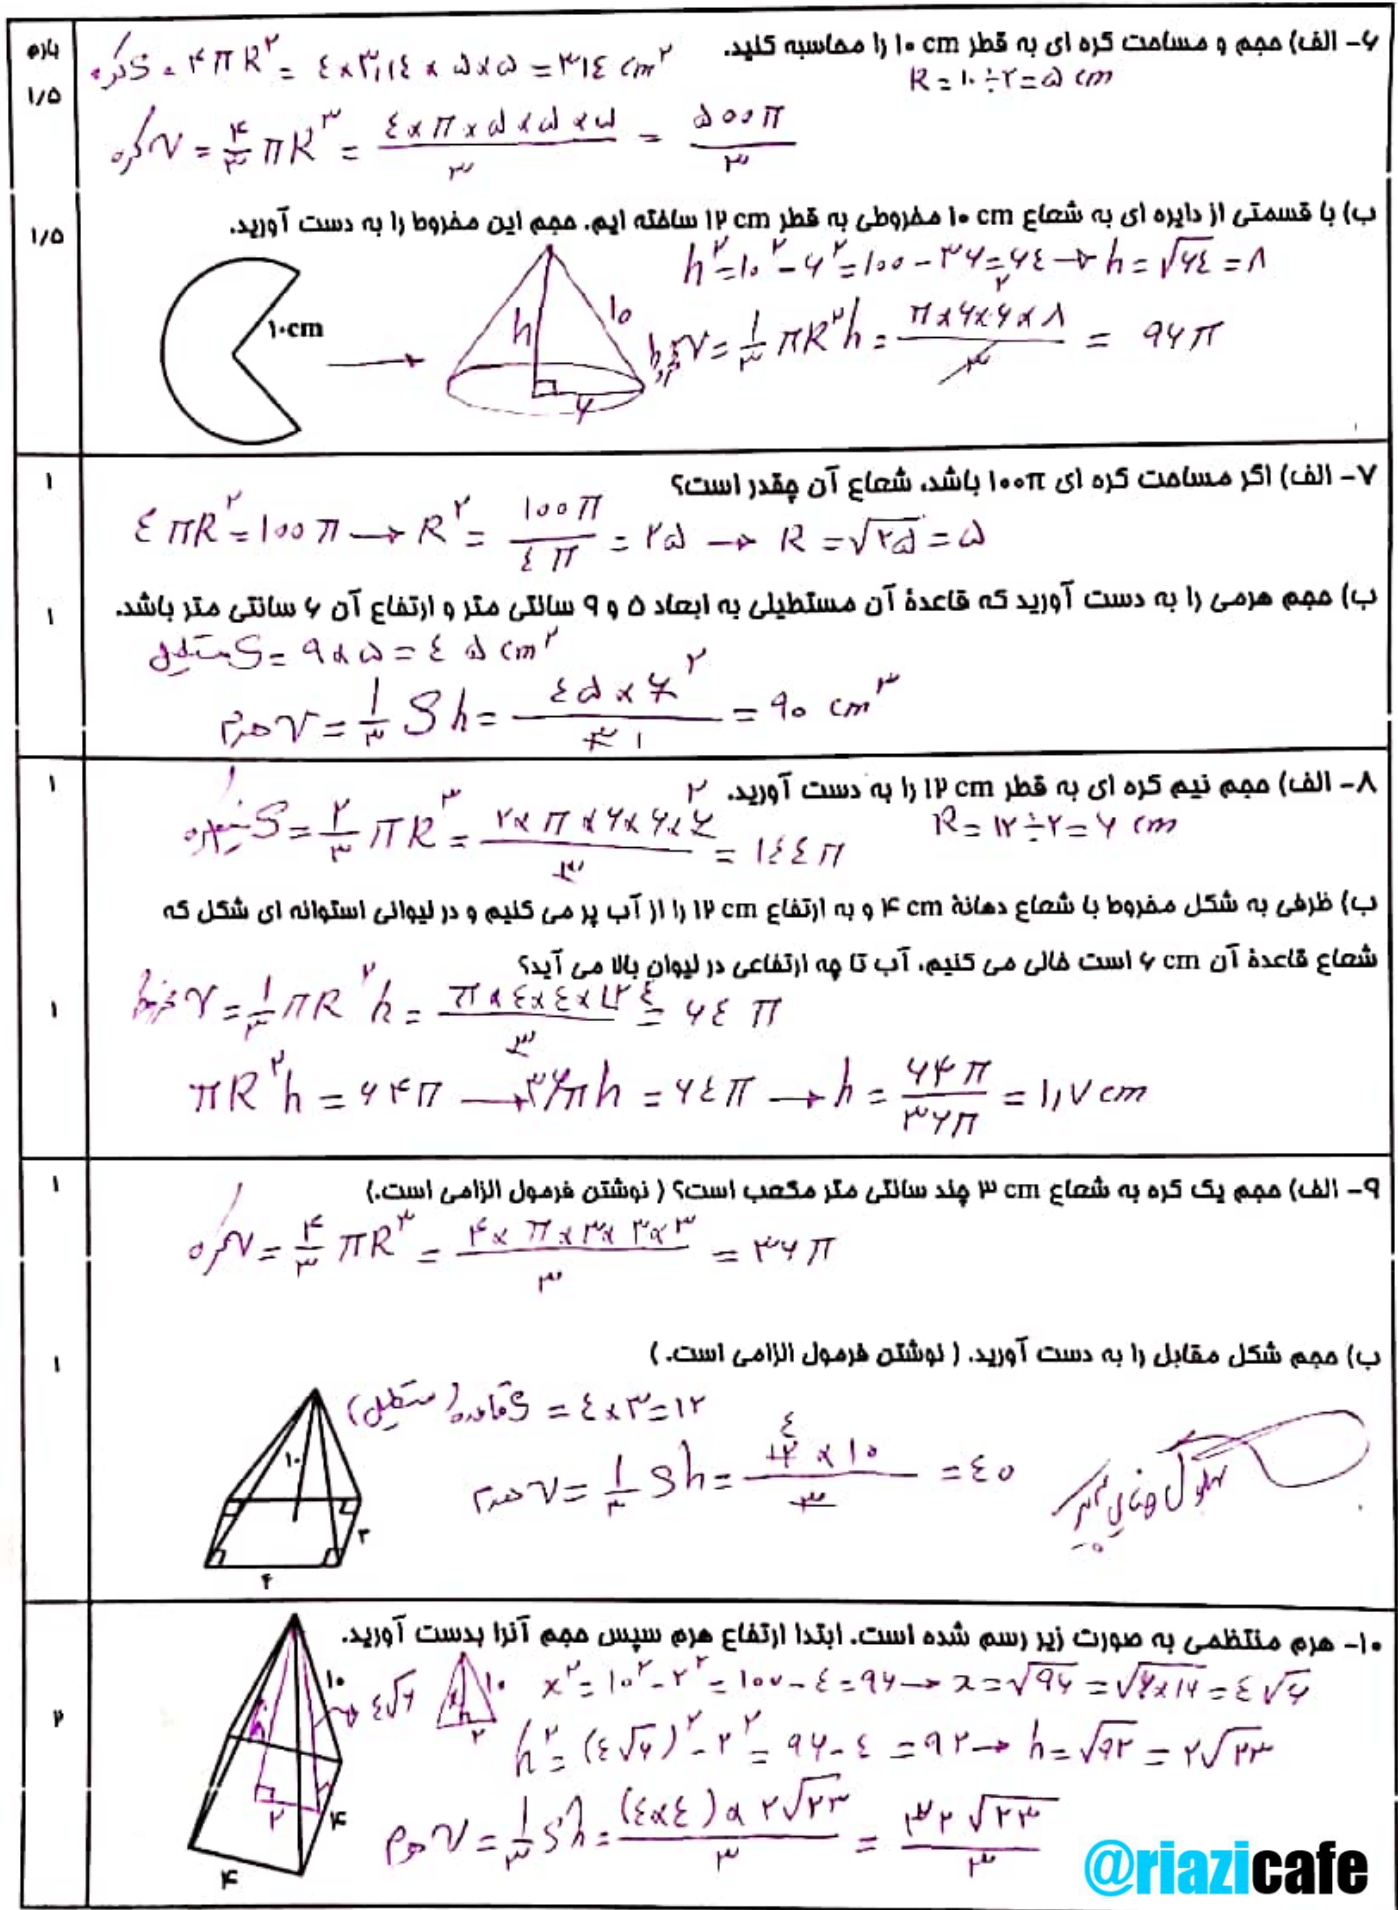 بارم
۶- الف) حجم و مساحت کره ای به قطر ۱۰ cm را محاسبه کنید.
۱/۵
R = ۱۰ ÷ ۲ = ۵ cm
S کره = ۴πR² = ۴ × ۳,۱۴ × ۵ × ۵ = ۳۱۴ cm²
V کره = ۴/۳ πR³ = ۴ × π × ۵ × ۵ × ۵ / ۳ = ۵۰۰π / ۳
ب) با قسمتی از دایره ای به شعاع ۱۰ cm مخروطی به قطر ۱۲ cm ساخته ایم. حجم این مخروط را به دست آورید.
۱/۵
h² = ۱۰² - ۶² = ۱۰۰ - ۳۶ = ۶۴ → h = √۶۴ = ۸
V مخروط = ۱/۳ πR²h = π × ۶ × ۶ × ۸ / ۳ = ۹۶π
۱۰cm
h
۱۰
۶
۷- الف) اگر مساحت کره ای ۱۰۰π باشد، شعاع آن چقدر است؟
۱
۴πR² = ۱۰۰π → R² = ۱۰۰π / ۴π = ۲۵ → R = √۲۵ = ۵
ب) حجم هرمی را به دست آورید که قاعدهٔ آن مستطیلی به ابعاد ۵ و ۹ سانتی متر و ارتفاع آن ۶ سانتی متر باشد.
۱
S مستطیل = ۹ × ۵ = ۴۵ cm²
V هرم = ۱/۳ Sh = ۴۵ × ۶ / ۳ = ۹۰ cm³
۸- الف) حجم نیم کره ای به قطر ۱۲ cm را به دست آورید.
۱
R = ۱۲ ÷ ۲ = ۶ cm
S نیمکره = ۲/۳ πR³ = ۲ × π × ۶ × ۶ × ۶ / ۳ = ۱۴۴π
ب) ظرفی به شکل مخروط با شعاع دهانهٔ ۴ cm و به ارتفاع ۱۲ cm را از آب پر می کنیم و در لیوانی استوانه ای شکل که
شعاع قاعدهٔ آن ۶ cm است خالی می کنیم. آب تا چه ارتفاعی در لیوان بالا می آید؟
۱
V مخروط = ۱/۳ πR²h = π × ۴ × ۴ × ۱۲ / ۳ = ۶۴π
πR²h = ۶۴π → ۳۶πh = ۶۴π → h = ۶۴π / ۳۶π = ۱,۷ cm
۹- الف) حجم یک کره به شعاع ۳ cm چند سانتی متر مکعب است؟ ( نوشتن فرمول الزامی است.)
۱
V کره = ۴/۳ πR³ = ۴ × π × ۳ × ۳ × ۳ / ۳ = ۳۶π
ب) حجم شکل مقابل را به دست آورید. ( نوشتن فرمول الزامی است. )
۱
S قاعده (مستطیل) = ۴ × ۳ = ۱۲
V هرم = ۱/۳ Sh = ۱۲ × ۱۰ / ۳ = ۴۰
۱۰
۳
۴
۱۰- هرم منتظمی به صورت زیر رسم شده است. ابتدا ارتفاع هرم سپس حجم آنرا بدست آورید.
۲
x² = ۱۰² - ۲² = ۱۰۰ - ۴ = ۹۶ → x = √۹۶ = √۶×۱۶ = ۴√۶
h² = (۴√۶)² - ۲² = ۹۶ - ۴ = ۹۲ → h = √۹۲ = ۲√۲۳
V هرم = ۱/۳ Sh = (۴×۴) × ۲√۲۳ / ۳ = ۳۲√۲۳ / ۳
۱۰
۴√۶
h
۲
۴
۴
x
۱۰
۲
@riazicafe